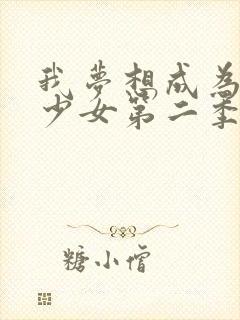 我夢想成為
少女第二季
糖小僧